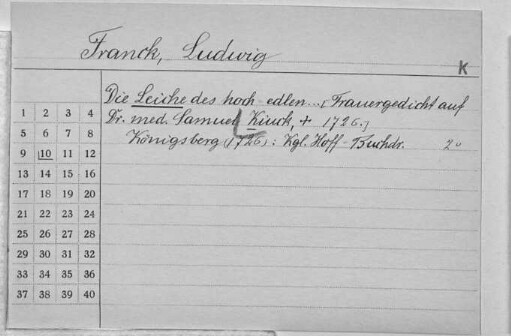 Franck, Ludwig
K
Die Leiche des hoch-edlen ... [Trauergedicht auf
Dr. med. Samuel Kiuck, + 1726.]
Königsberg (1726): Kgl. Hoff-Buchdr. 2°
1 2 3 4
5 6 7 8
9 10 11 12
13 14 15 16
17 18 19 20
21 22 23 24
25 26 27 28
29 30 31 32
33 34 35 36
37 38 39 40